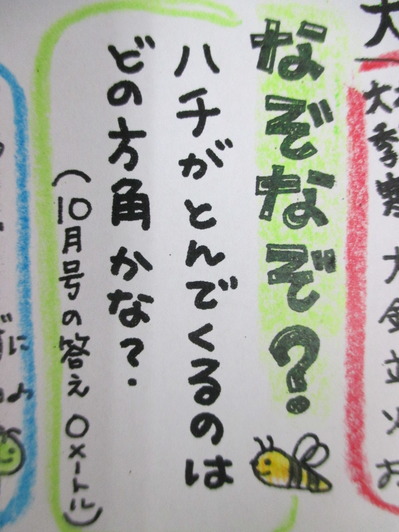 なぞなぞ？
ハチがとんでくるのは
どの方角かな？
（10月号の答え 0メートル）